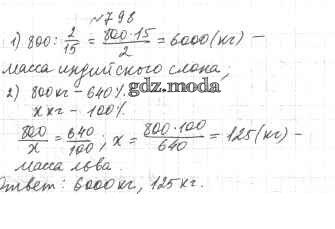 №798
1) 800 : 2/15 = 800·15/2 = 6000 (кг) –
масса индийского слона;
2) 800 кг – 640%
x кг – 100%
gdz.moda
800/x = 640/100; x = 800·100/640 = 125 (кг) –
масса льва.
Ответ: 6000 кг, 125 кг.